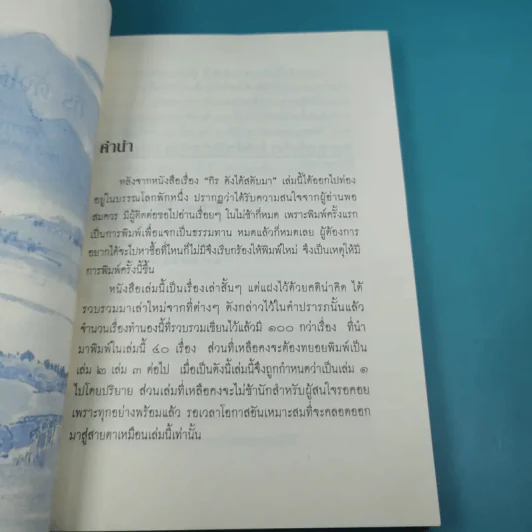 คำนำ
หลังจากหนังสือเรื่อง “กิร ดังได้สดับมา” เล่มนี้ได้ออกไปท่อง
อยู่ในบรรณโลกพักหนึ่ง ปรากฏว่าได้รับความสนใจจากผู้อ่านพอ
สมควร มีผู้ติดต่อขอไปอ่านเรื่อยๆ ในไม่ช้าก็หมด เพราะพิมพ์ครั้งแรก
เป็นการพิมพ์เพื่อแจกเป็นธรรมทาน หมดแล้วก็หมดเลย ผู้ต้องการ
อยากได้จะไปหาซื้อที่ไหนก็ไม่มีจึงเรียกร้องให้พิมพ์ใหม่ จึงเป็นเหตุให้มี
การพิมพ์ครั้งนี้ขึ้น
หนังสือเล่มนี้เป็นเรื่องเล่าสั้นๆ แต่แฝงไว้ด้วยคตินำคิด ได้
รวบรวมมาเล่าใหม่จากที่ต่างๆ ดังกล่าวไว้ในคำปรารภนั้นแล้ว
จำนวนเรื่องทำนองนี้ที่รวบรวมเขียนไว้แล้วมี ๑๐๐ กว่าเรื่อง ที่นำ
มาพิมพ์ในเล่มนี้ ๔๐ เรื่อง ส่วนที่เหลือคงจะต้องทยอยพิมพ์เป็น
เล่ม ๒ เล่ม ๓ ต่อไป เมื่อเป็นดังนี้เล่มนี้จึงถูกกำหนดว่าเป็นเล่ม ๑
ไปโดยปริยาย ส่วนเล่มที่เหลือคงจะไม่ช้านักสำหรับผู้สนใจรอคอย
เพราะทุกอย่างพร้อมแล้ว รอเวลาโอกาสอันเหมาะสมที่จะคลอดออก
มาสู่สายตาเหมือนเล่มนี้เท่านั้น